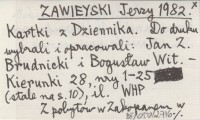 ZAWIEYSKI Jerzy 1982 x
Kartki z Dziennika. Do druku
wybrali i opracowali: Jan Z.
Brudnicki i Bogusław Wit. –
Kierunki 28, nry 1-25
(stale na s. 10), il. WHP
Z pobytów w Zakopanem w